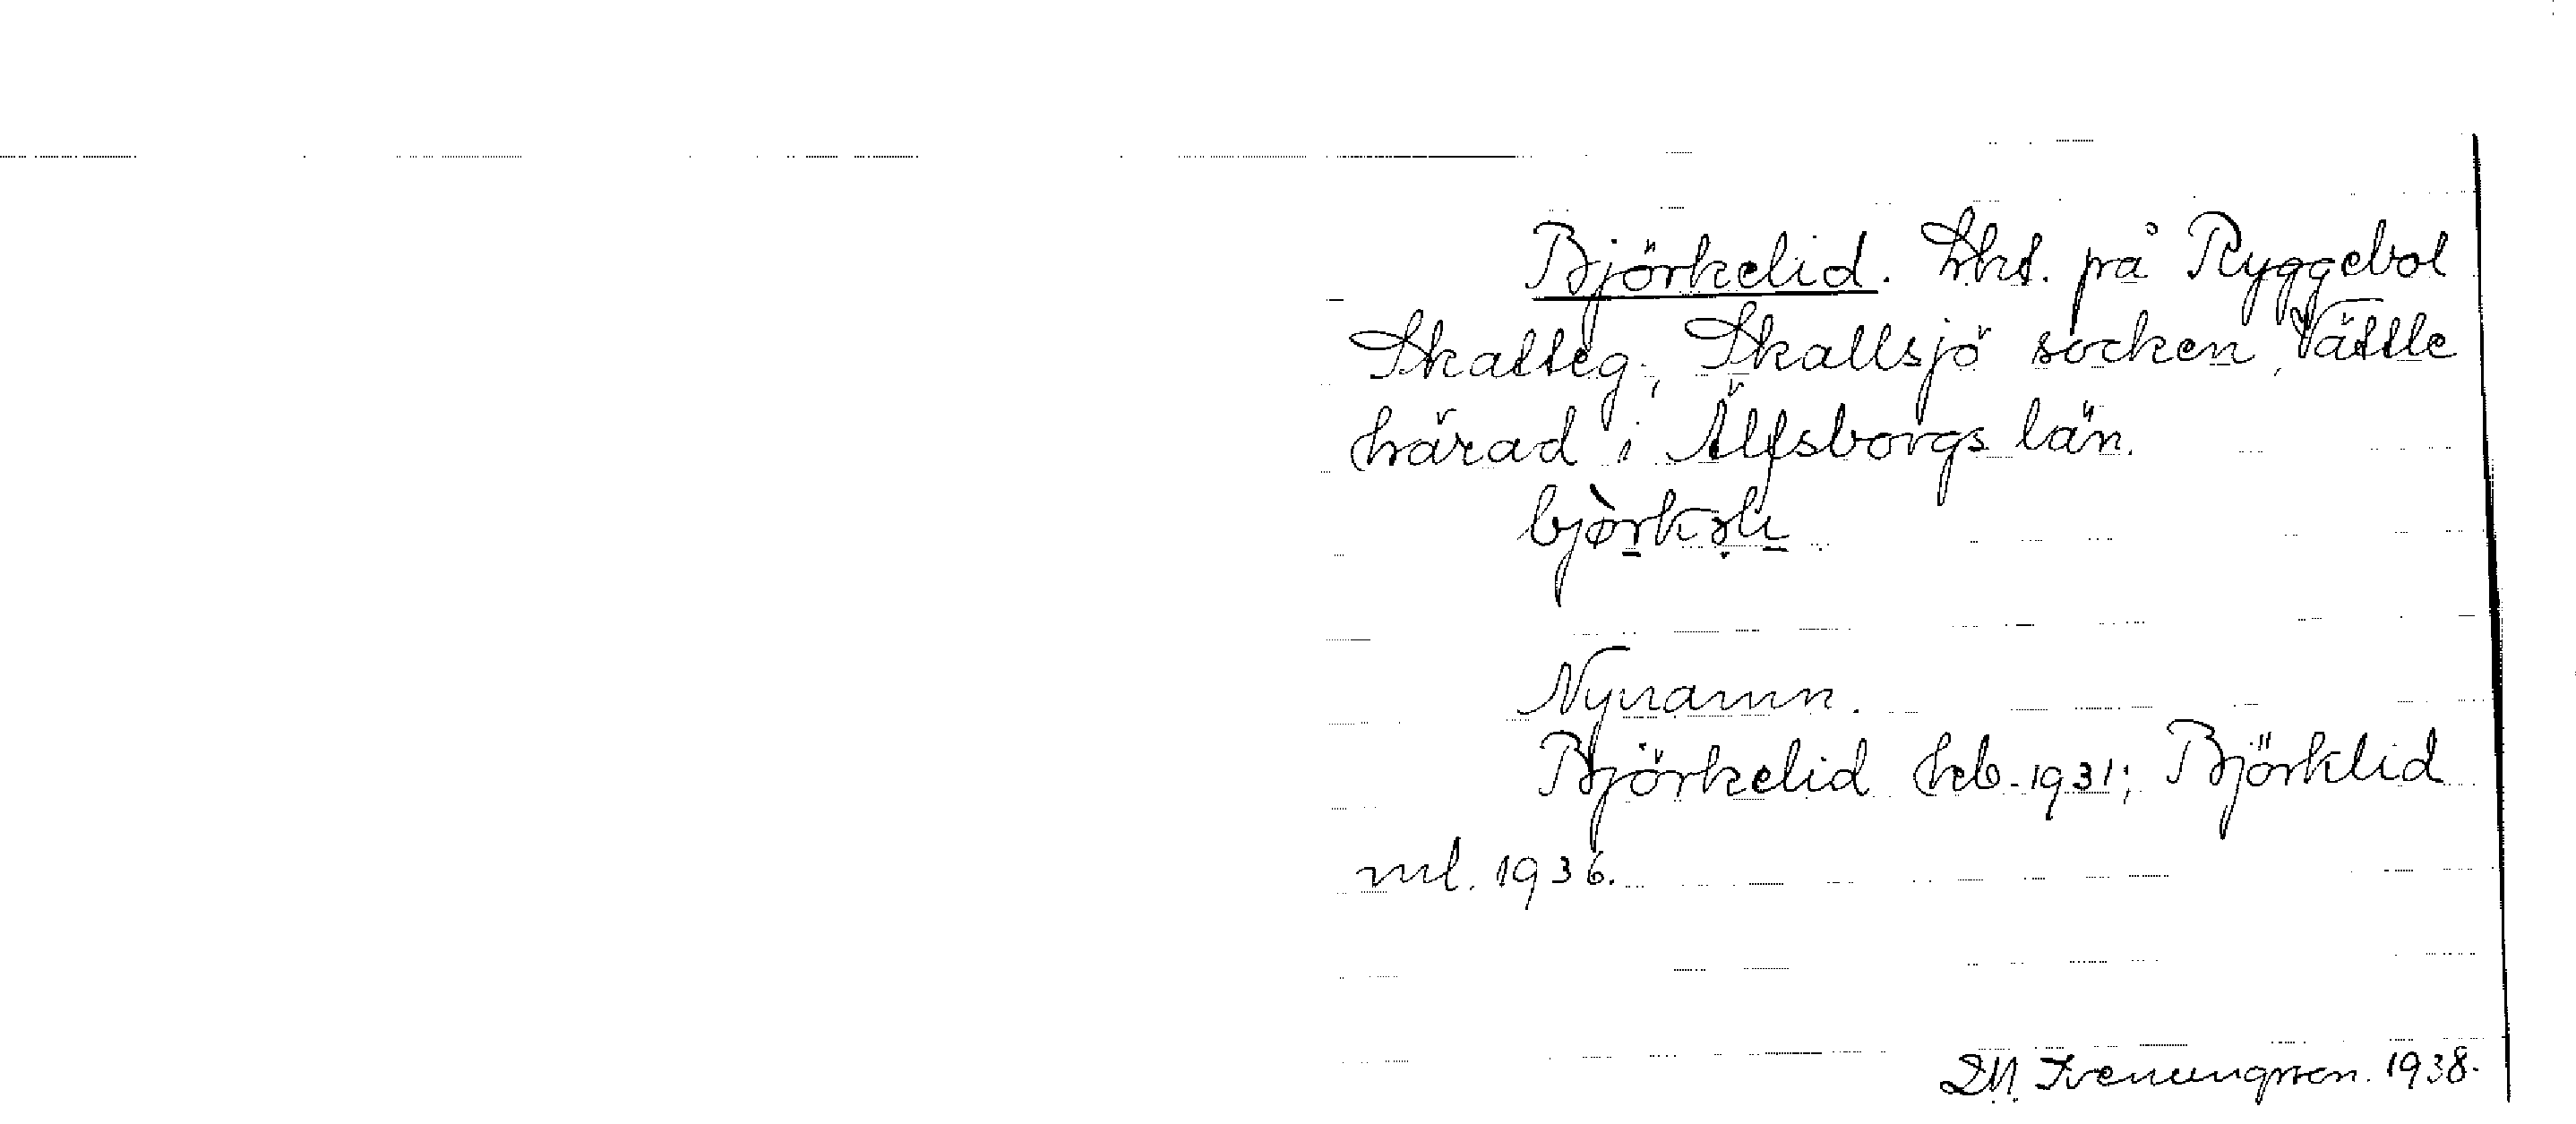 Björkelid. Lht. på Ryggebol
Skatteg., Skallsjö socken, Vättle
härad i Älfsborgs län.
bjørkəli
Nynamn.
Björkelid hcb. 1931; Björklid
ml. 1936.
D.N. Svenungsson. 1938.